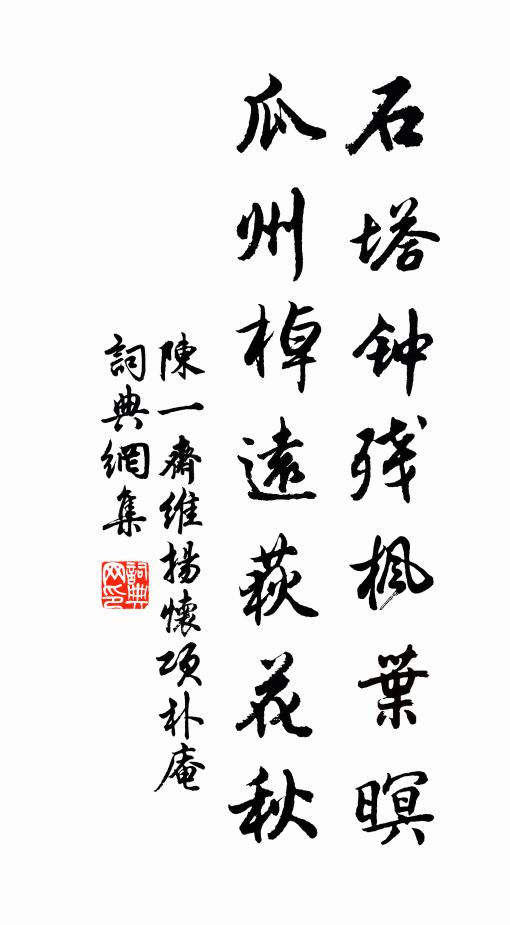 石塔钟残枫葉暝
瓜州棹遠荻花秋
陳一齋維揚懷項朴庵
詞典網集
詞典
网印